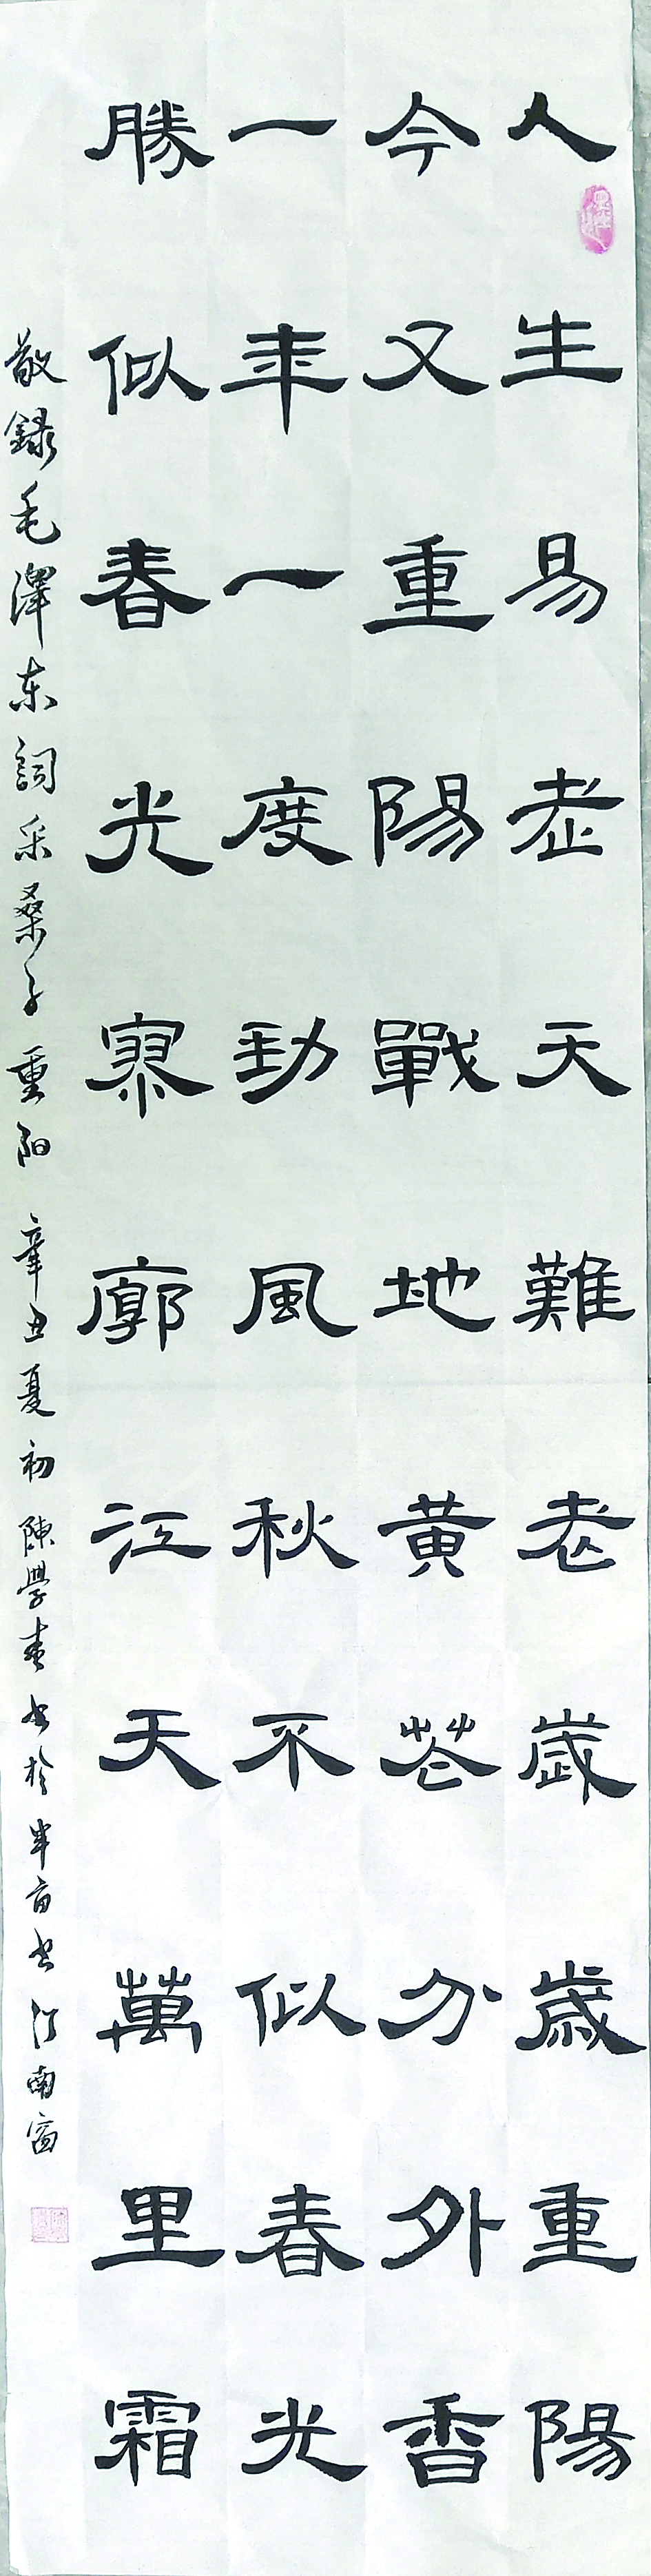 人生易老天難老歲歲重陽
今又重陽戰地黃花分外香
一年一度勁風秋不似春光
勝似春光寥廓江天萬里霜
敬録毛澤东詞采桑子重阳 辛丑夏初陳學春书於半亩书江南窗